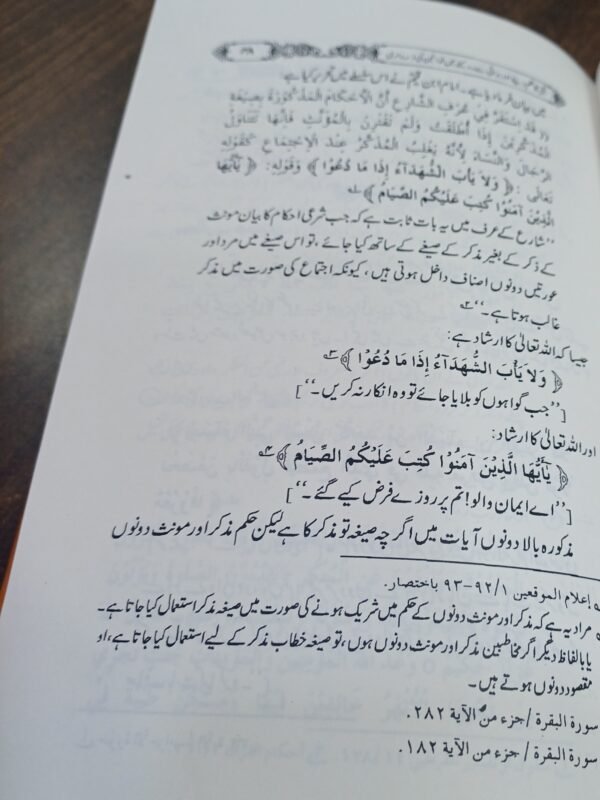 ۳۸
میں بیان فرمایا ہے۔ امام ابن قیم نے اس سلسلے میں تحریر کیا ہے:
وَقَدِ اسْتَقَرَّ فِي عُرْفِ الشَّارِعِ أَنَّ الْأَحْكَامَ الْمَذْكُوْرَةَ بِصِيْغَةِ
الْمُذَكَّرِيْنَ إِذَا أُطْلِقَتْ وَلَمْ تَقْتَرِنْ بِالْمُؤَنَّثِ فَإِنَّهَا تَتَنَاوَلُ
الرِّجَالَ وَالنِّسَاءَ لِأَنَّهُ يُغَلَّبُ الْمُذَكَّرُ عِنْدَ الْاِجْتِمَاعِ كَقَوْلِهِ
تَعَالَى: ﴿ وَلَا يَأْبَ الشُّهَدَآءُ إِذَا مَا دُعُوْا ﴾ وَقَوْلِهِ: ﴿ يٰٓأَيُّهَا
الَّذِيْنَ آمَنُوْا كُتِبَ عَلَيْكُمُ الصِّيَامُ ﴾ ۱؎
”شارع کے عرف میں یہ بات ثابت ہے کہ جب شرعی احکام کا بیان مونث
کے ذکر کے بغیر مذکر کے صیغے کے ساتھ کیا جائے، تو اس صیغے میں مرد اور
عورتیں دونوں اصناف داخل ہوتی ہیں، کیونکہ اجتماع کی صورت میں مذکر
غالب ہوتا ہے۔“ ۲؎
جیسا کہ اللہ تعالیٰ کا ارشاد ہے:
﴿ وَلَا يَأْبَ الشُّهَدَآءُ إِذَا مَا دُعُوْا ﴾ ۳؎
[”جب گواہوں کو بلایا جائے تو وہ انکار نہ کریں۔“]
اور اللہ تعالیٰ کا ارشاد:
﴿ يٰٓأَيُّهَا الَّذِيْنَ آمَنُوْا كُتِبَ عَلَيْكُمُ الصِّيَامُ ﴾ ۴؎
[”اے ایمان والو! تم پر روزے فرض کیے گئے۔“]
مذکورہ بالا دونوں آیات میں اگرچہ صیغہ تو مذکر کا ہے لیکن حکم مذکر اور مونث دونوں
إعلام الموقعین ۹۲/۱-۹۳ باختصار.
مراد یہ ہے کہ مذکر اور مونث دونوں کے حکم میں شریک ہونے کی صورت میں صیغہ مذکر استعمال کیا جاتا ہے۔
یا بالفاظ دیگر اگر مخاطبین مذکر اور مونث دونوں ہوں، تو صیغہ خطاب مذکر کے لیے استعمال کیا جاتا ہے، او
مقصود دونوں ہوتے ہیں۔
سورة البقرة / جزء من الآية ۲۸۲.
سورة البقرة / جزء من الآية ۱۸۲.